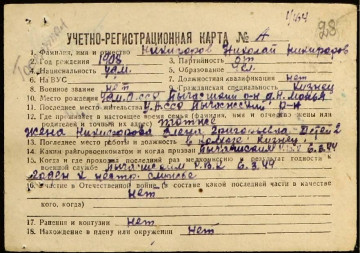 28
УЧЕТНО-РЕГИСТРАЦИОННАЯ КАРТА № А
1. Фамилия, имя и отчество Никифоров Николай Никифоров
2. Год рождения 1908 3. Партийность б/п
4. Национальность удм. 5. Образование
6. На ВУС 7. Должностная квалификация нет
8. Военное звание нет 9. Гражданская специальность кузнец
10. Место рождения Удм. АССР
11. Последнее местожительство УАССР р-н
12. Где проживает в настоящее время семья (фамилия, имя и отчество жены или
родителей и точный их адрес) там же
жена Никифорова Елена Григорьевна детей 2
13. Последнее место работы и должность в колхозе кузнец
14. Каким райвоенкоматом и когда призван РВК 6.3.44
15. Когда и где проходил последний раз медкомиссию и результат годность к
военной службе РВК 6.3.44
годен к нестр. службе
16. Участие в Отечественной войне (в составе какой последней части и в качестве
кого, когда) нет
17. Ранение и контузии нет
18. Нахождение в плену или окружении нет